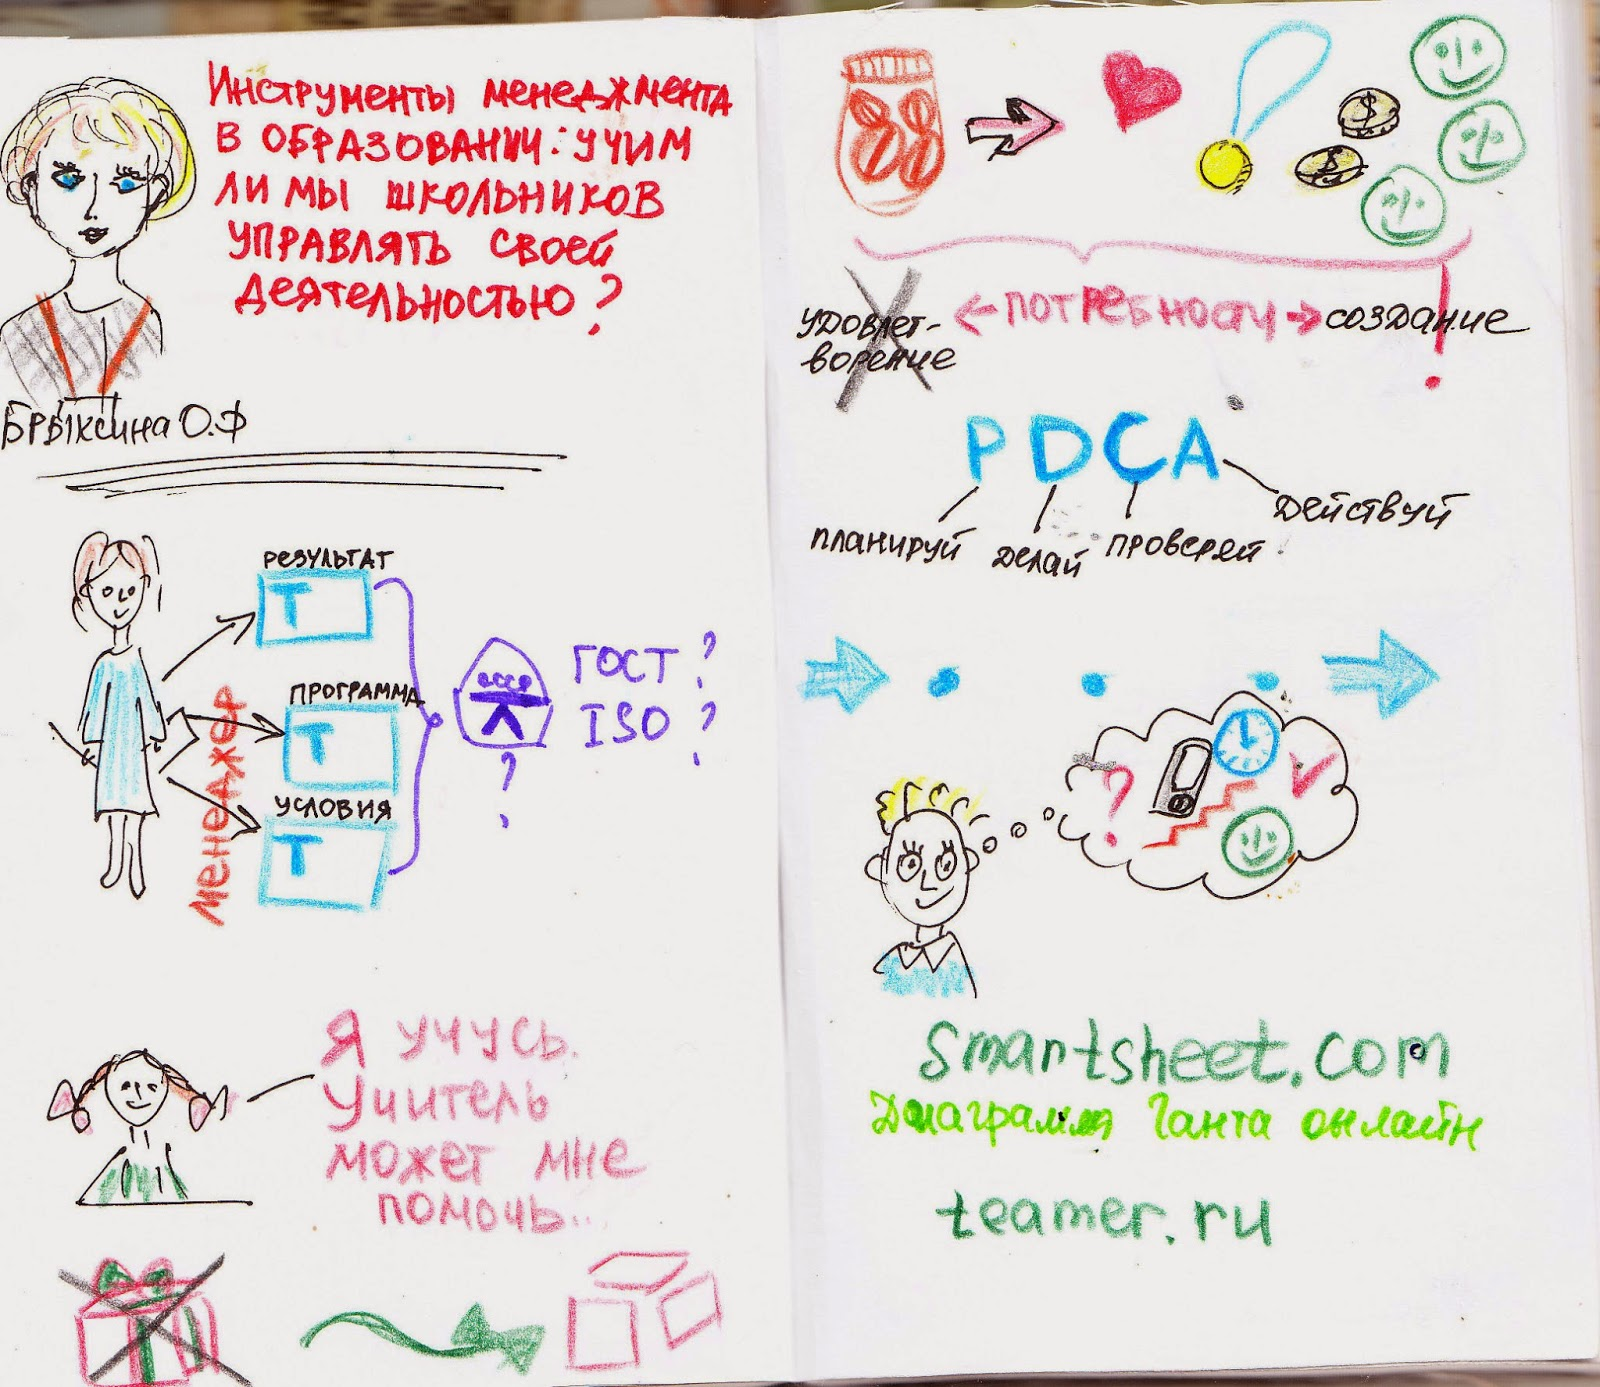 Инструменты менеджмента
в образовании: учим
ли мы школьников
управлять своей
деятельностью?
Брыксина О.Ф
результат
Т
программа
Т
условия
Т
Менеджер
СССР
?
ГОСТ?
ISO?
Я учусь.
Учитель
может мне
помочь...
$
$
удовлет-
ворение
<- потребности -> создание
!
PDCA
планируй
делай
проверяй
действуй
?
smartsheet.com
Диаграмма Ганта онлайн
teamer.ru